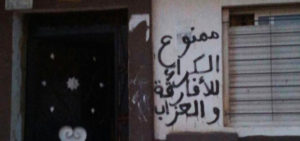 ممنوع
الكراء
للأفارقة
والعزاب